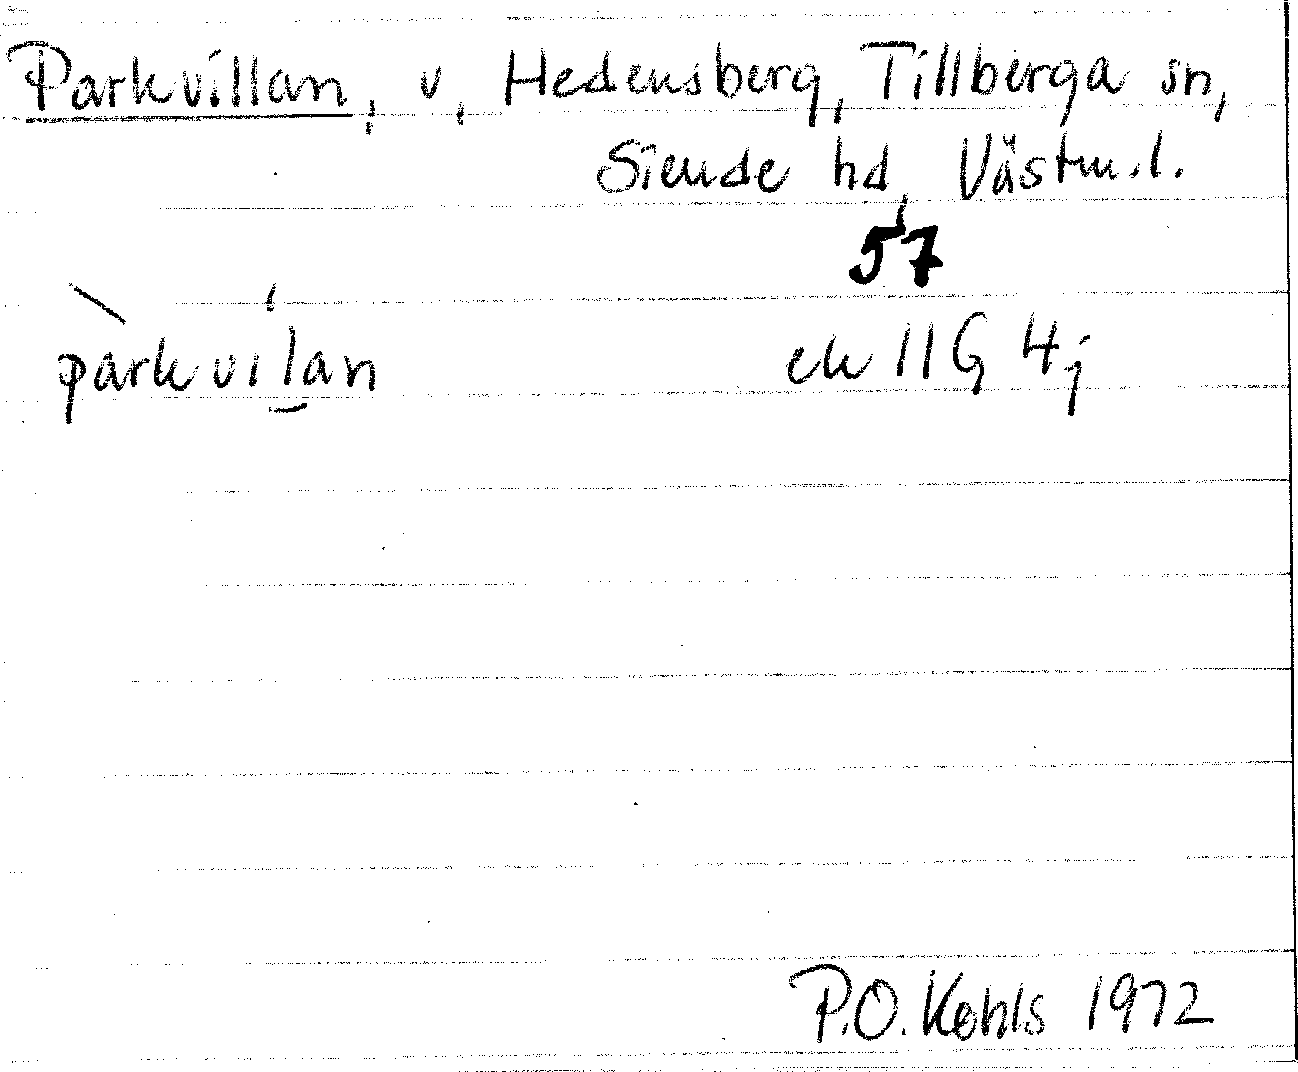 Parkvillan, v, Hedensberg, Tillberga sn,
Siende hd, Västm.l.
57
parkvilan ek 11G 4j
P.O. Kohls 1972